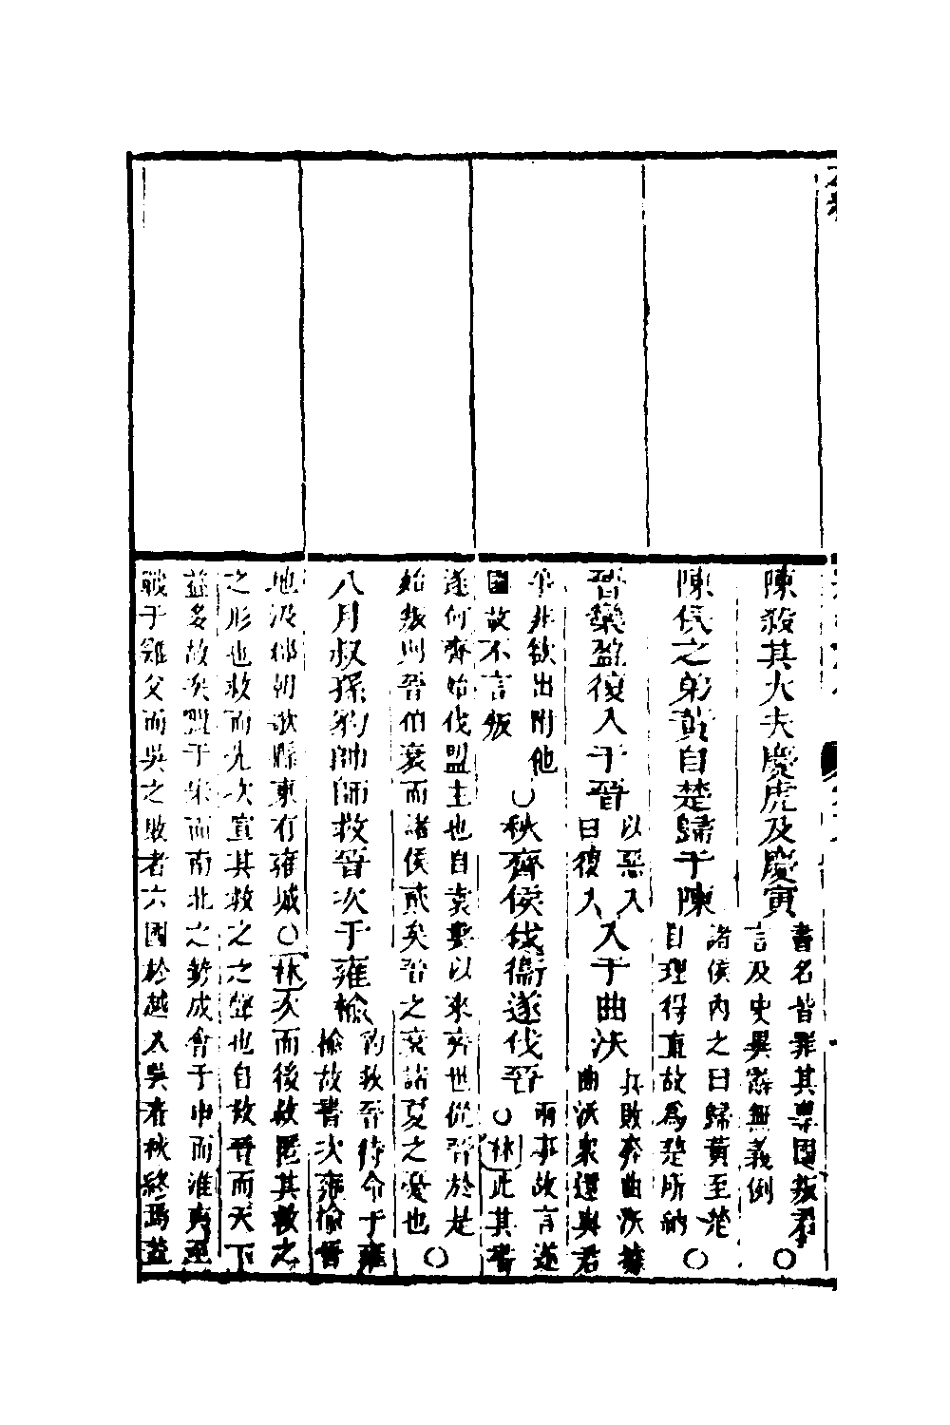 陳殺其大夫慶虎及慶寅
書名皆罪其專國叛君
言及史異辭無義例○
陳侯之弟黃自楚歸于陳
諸侯內之曰歸黃至楚
自理得直故為楚所納○
晉欒盈復入于晉
以惡入
曰復入
入于曲沃
兵敗奔曲沃據
曲沃衆還與君
爭非欲出附他
國故不言叛
○秋齊侯伐衞遂伐晉
兩事故言遂
○林此其書
遂何齊始伐盟主也自袁婁以來齊世從晉於是
始叛則晉伯衰而諸侯貳矣晉之衰諸夏之憂也○
八月叔孫豹帥師救晉次于雍榆
豹救晉待命于雍
榆故書次雍榆晉
地汲郡朝歌縣東有雍城○林次而後救匿其救之
之形也救而先次宣其救之之聲也自救晉而天下
益多故矣盟于宋而南北之勢成會于申而淮夷
戰于雞父而吳之敗者六國於越入吳春秋終焉蓋